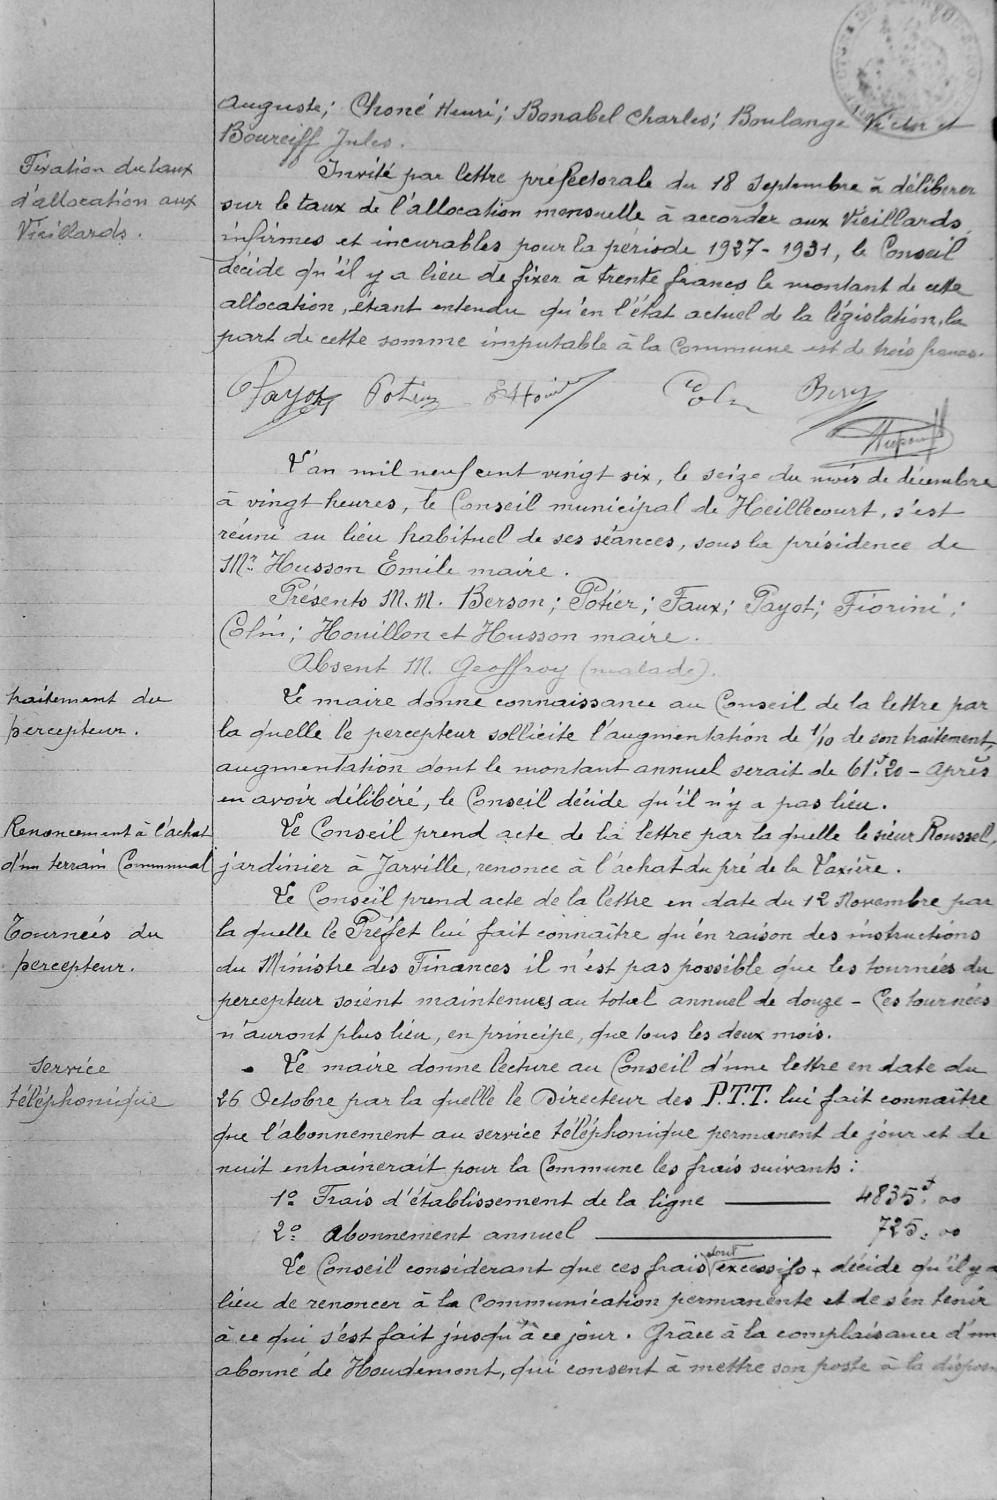 Auguste; Choné Henri; Bonabel Charles; Boulangé Victor et
Boureiff Jules.
Fixation du taux
d'allocation aux
Vieillards.
Invité par lettre préfectorale du 18 Septembre à délibérer
sur le taux de l'allocation mensuelle à accorder aux Vieillards,
infirmes et incurables pour la période 1927-1931, le Conseil
décide qu'il y a lieu de fixer à trente francs le montant de cette
allocation, étant entendu qu'en l'état actuel de la législation, la
part de cette somme imputable à la Commune est de trois francs.
Payot Potier Colin
L'an mil neuf cent vingt six, le seize du mois de décembre
à vingt heures, le Conseil municipal de Heillecourt, s'est
réuni au lieu habituel de ses séances, sous la présidence de
Mr. Husson Emile maire.
Présents M.M. Berson; Potier; Faux; Payot; Fiorini;
Colin; Houillon et Husson maire.
Absent M. Geoffroy (malade).
traitement du
percepteur.
Le maire donne connaissance au Conseil de la lettre par
la quelle le percepteur sollicite l'augmentation de 1/10 de son traitement,
augmentation dont le montant annuel serait de 61f.20 - Après
en avoir délibéré, le Conseil décide qu'il n'y a pas lieu.
Renoncement à l'achat
d'un terrain Communal
Le Conseil prend acte de la lettre par la quelle le sieur Roussel,
jardinier à Jarville, renonce à l'achat du pré de la Taxière.
Tournées du
percepteur.
Le Conseil prend acte de la lettre en date du 12 Novembre par
la quelle le Préfet lui fait connaître qu'en raison des instructions
du Ministre des Finances il n'est pas possible que les tournées du
percepteur soient maintenues au total annuel de douze - Ces tournées
n'auront plus lieu, en principe, que tous les deux mois.
Service
téléphonique
Le maire donne lecture au Conseil d'une lettre en date du
26 Octobre par la quelle le Directeur des P.T.T. lui fait connaître
que l'abonnement au service téléphonique permanent de jour et de
nuit entrainerait pour la Commune les frais suivants:
1º Frais d'établissement de la ligne 4835f.00
2º Abonnement annuel 725.00
Le Conseil considerant que ces frais sont excessifs, décide qu'il y a
lieu de renoncer à la communication permanente et de s'en tenir
à ce qui s'est fait jusqu'à ce jour. Grâce à la complaisance d'un
abonné de Houdemont, qui consent à mettre son poste à la dispos